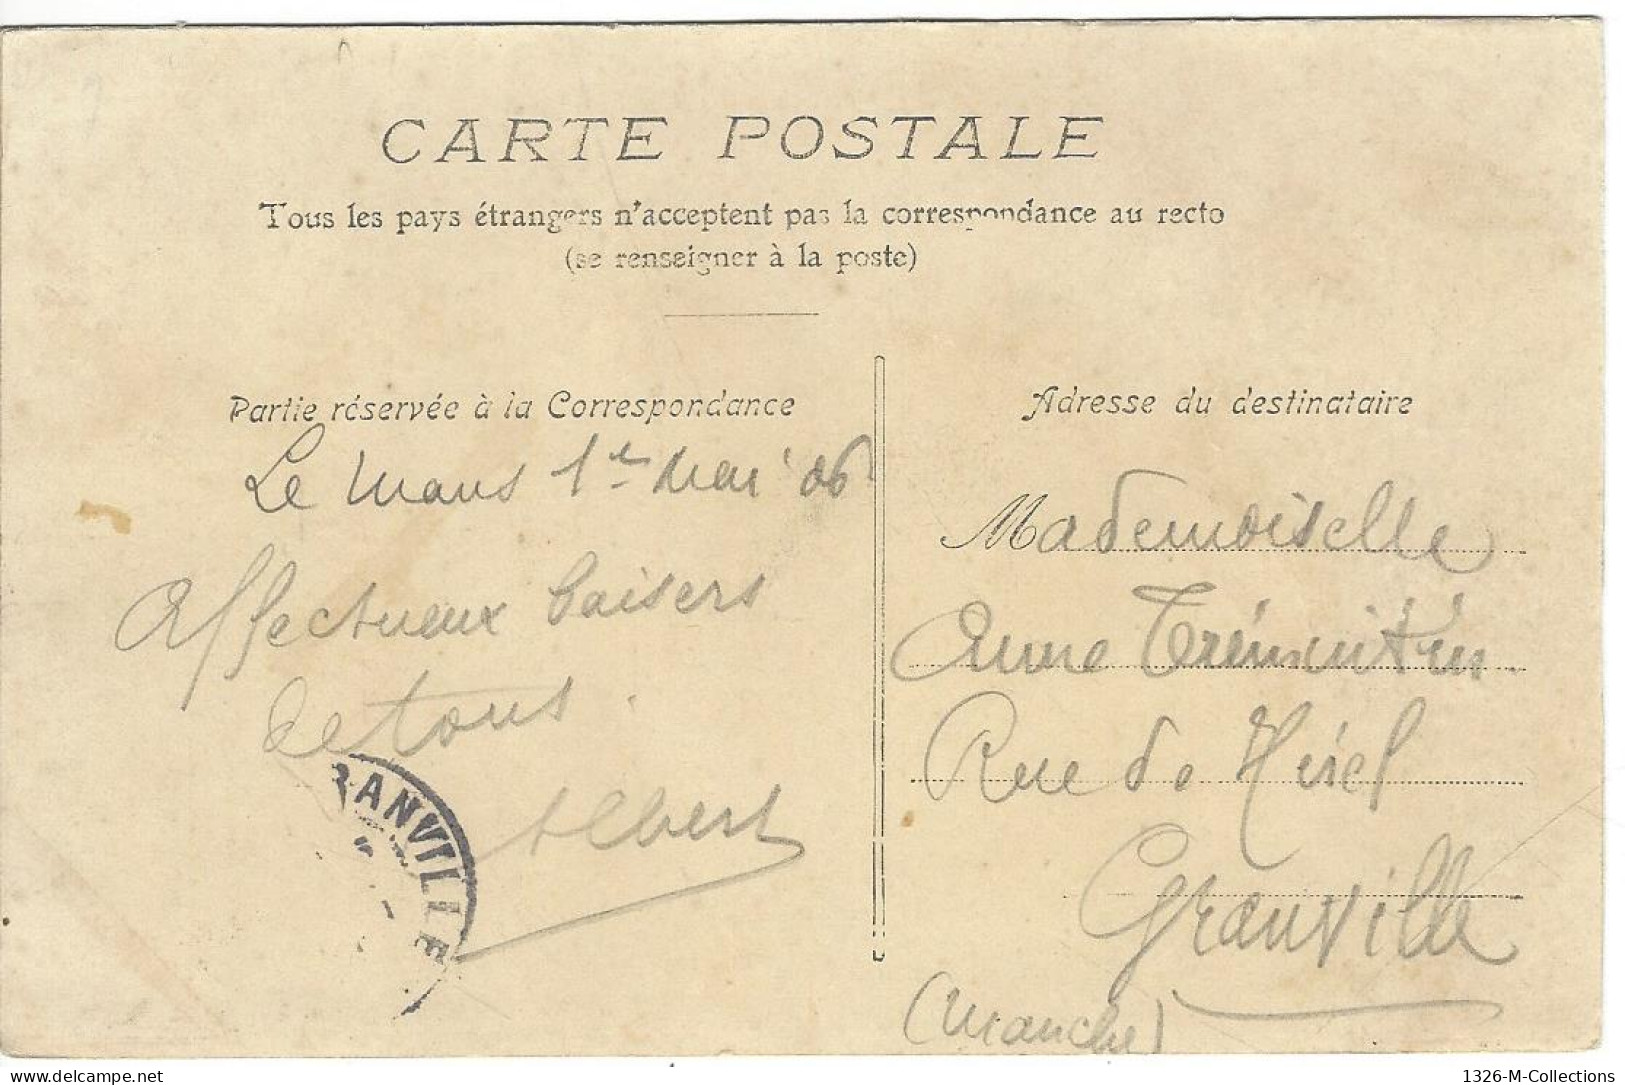 CARTE POSTALE
Tous les pays étrangers n'acceptent pas la correspondance au recto
(se renseigner à la poste)
Partie réservée à la Correspondance
Le Mans 1er Mai 06
Affectueux baisers
de tous.
Albert
RANVILLE
Adresse du destinataire
Mademoiselle
Anne
Rue de Hirel
Granville
(Manche)
1326-M-Collections